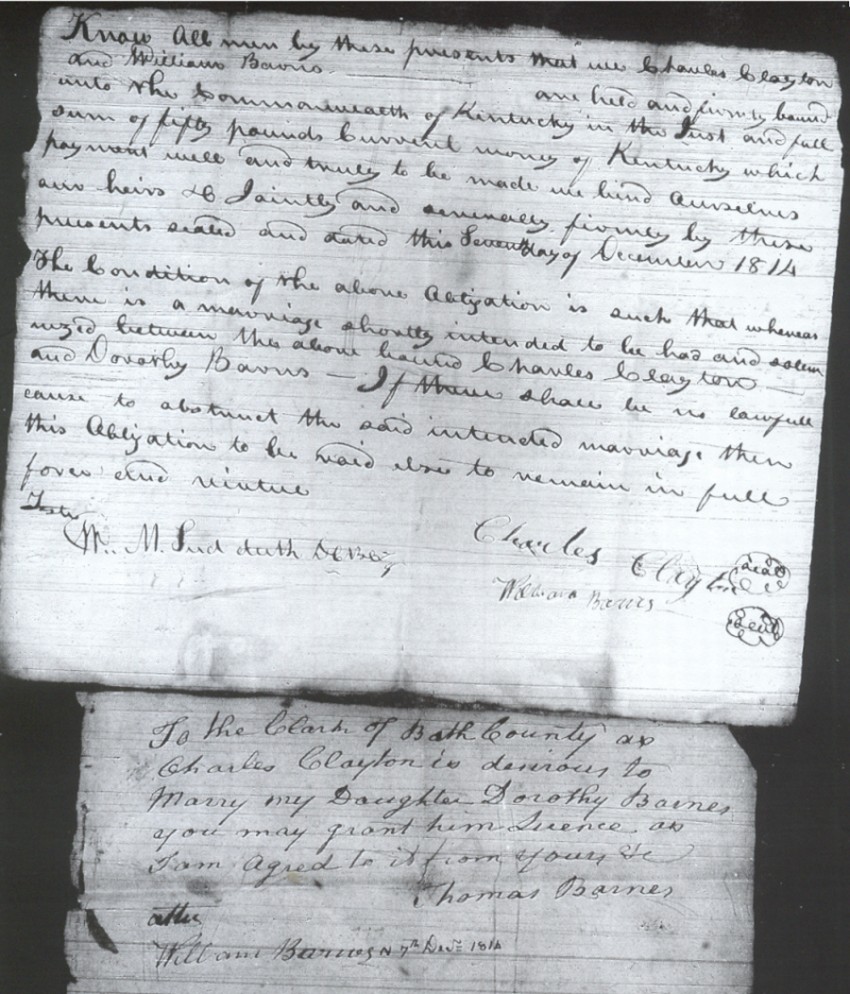 Know All men by these presents that we Charles Clayton
and William Barns are held and firmly bound
unto the Commonwealth of Kentucky in the Just and full
sum of fifty pounds Current money of Kentucky which
payment well and truly to be made we bind ourselves
our heirs &C Jointly and severally firmly by these
presents sealed and dated this Seventh day of December 1814
The Condition of the above Obligation is such that whereas
there is a marriage shortly intended to be had and solem
nized between the above bound Charles Clayton —
and Dorothy Barns — If there shall be no lawfull
cause to obstruct the said intended marriage then
this Obligation to be void else to remain in full
force and virtue
Teste
Wm. M. Sudduth
Charles Clayton seal
William Barns seal
To the Clark of Bath County as
Charles Clayton is desirous to
Marry my Daughter Dorothy Barnes
you may grant him Licence as
I am Agred to it from yours &c
Thomas Barnes
William Barnes 7th Decr 1814